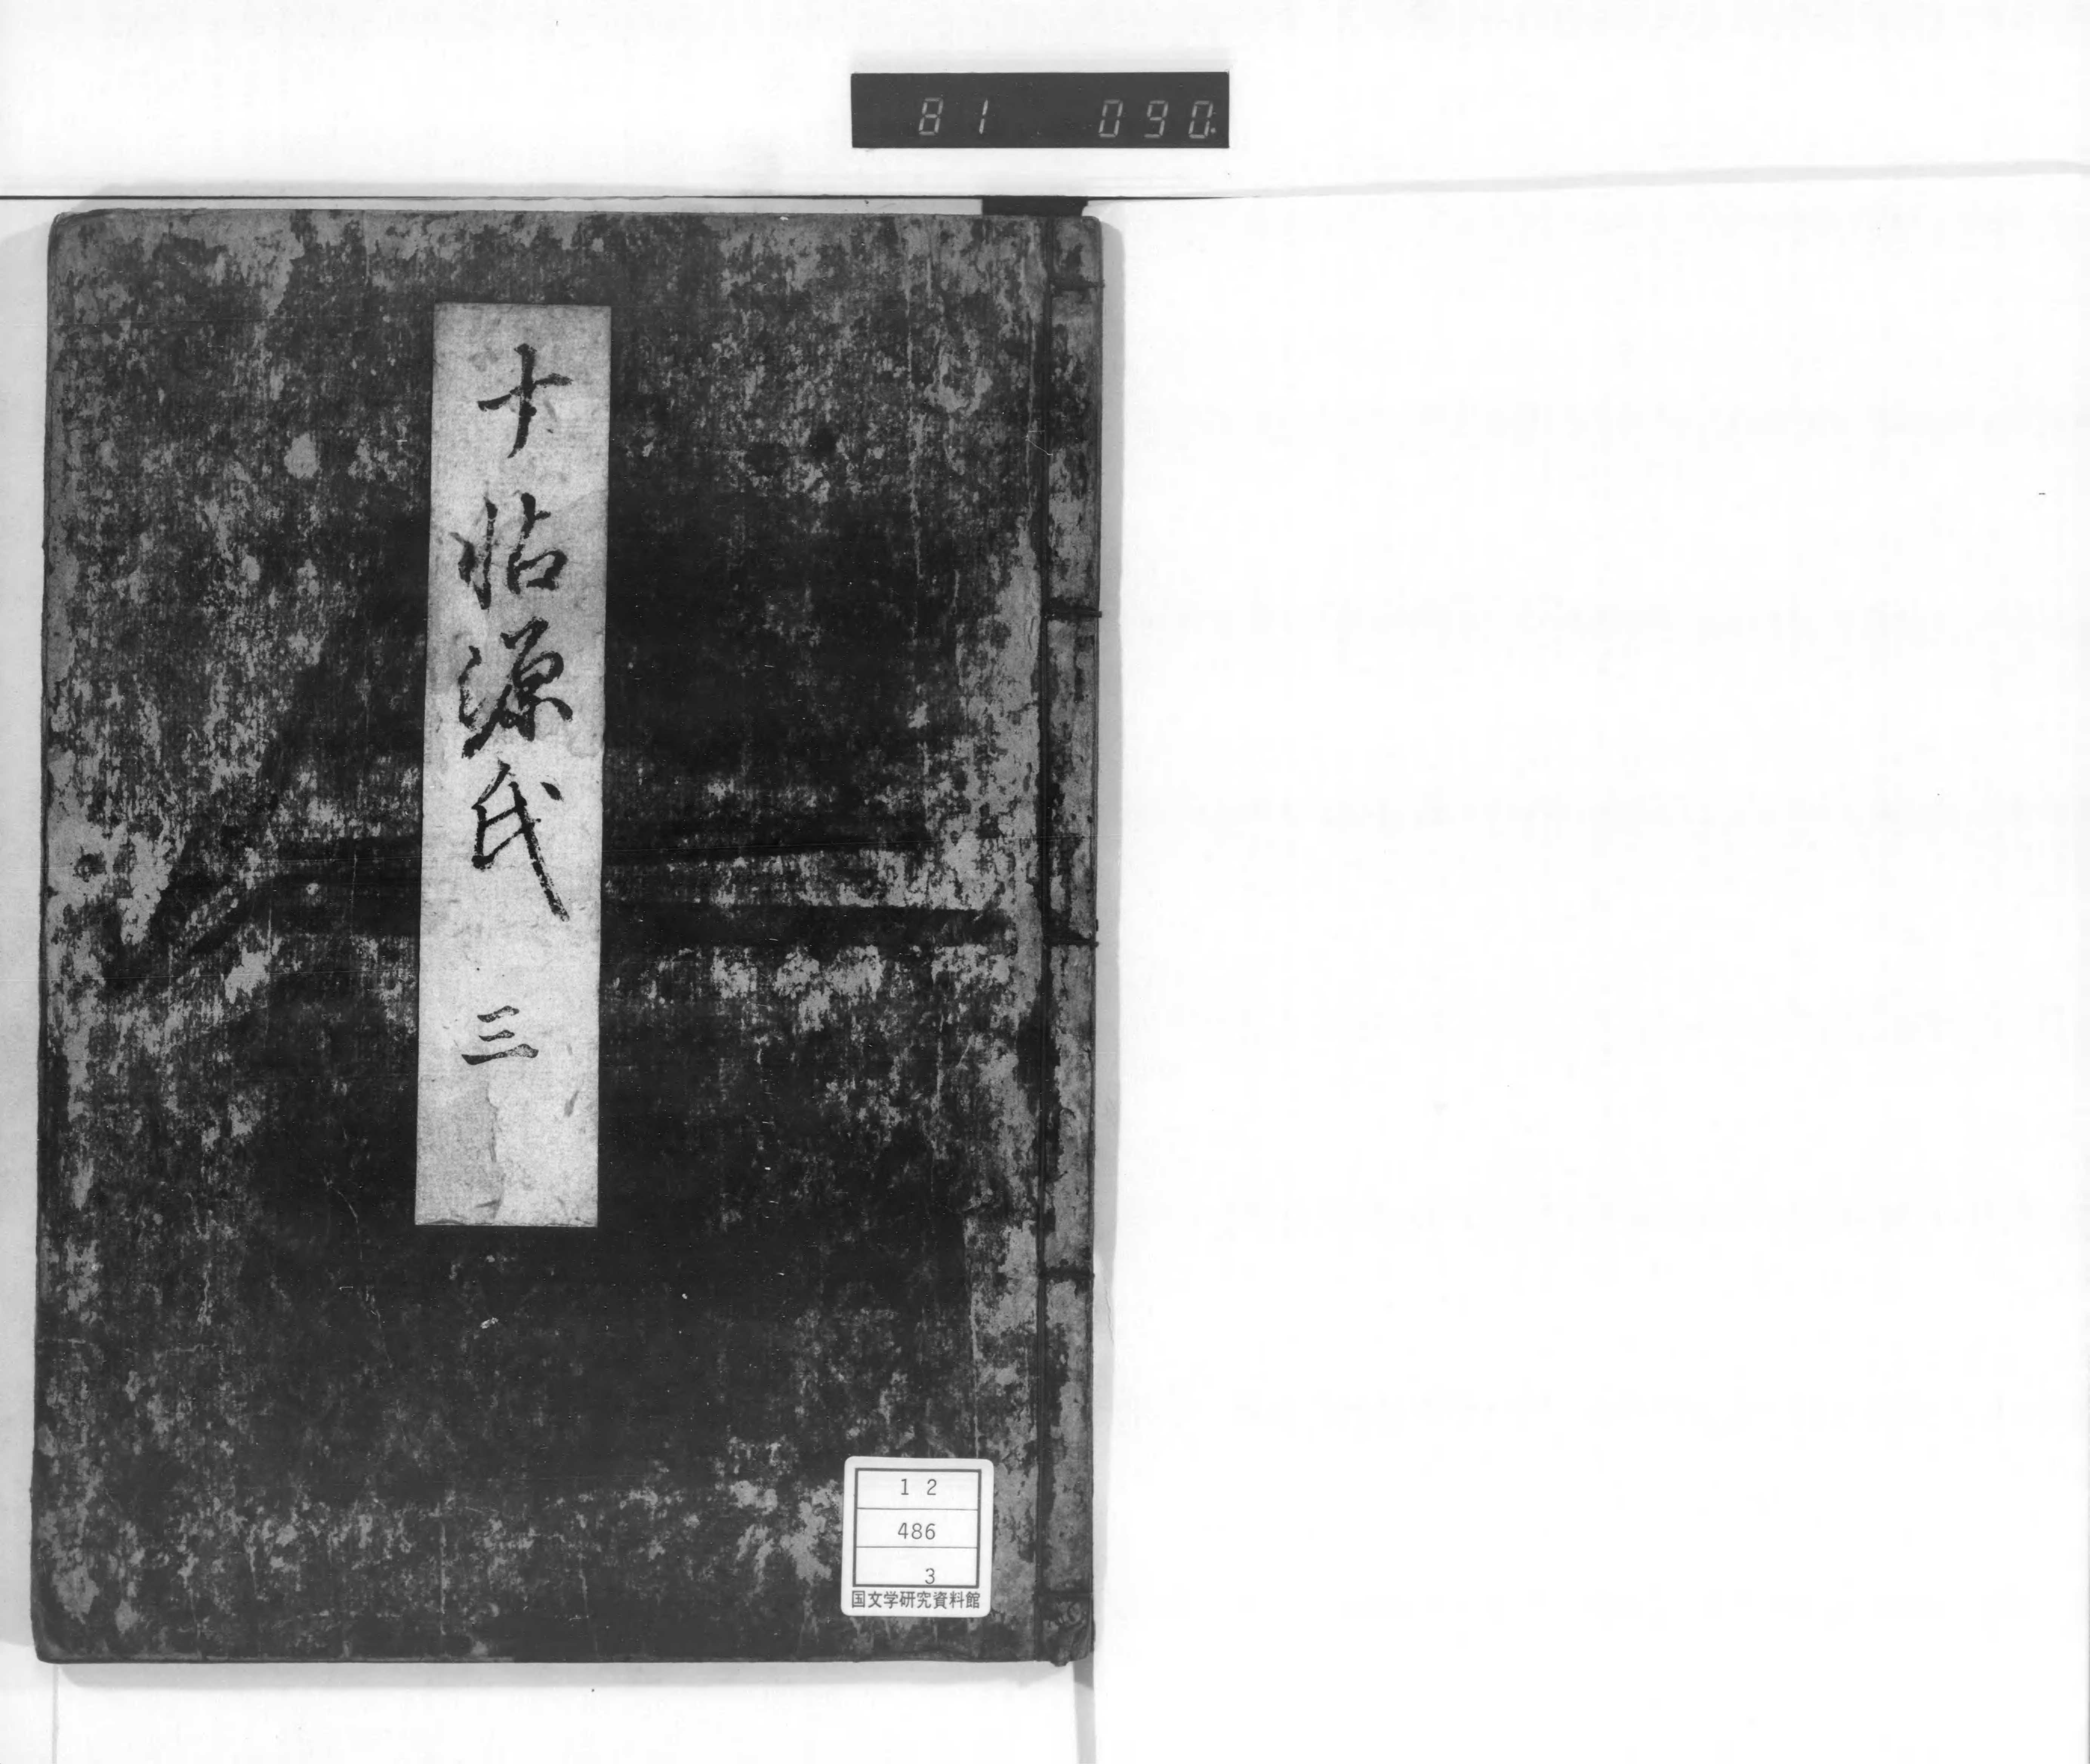 81 090
十帖源氏 三
12
486
3
国文学研究資料館